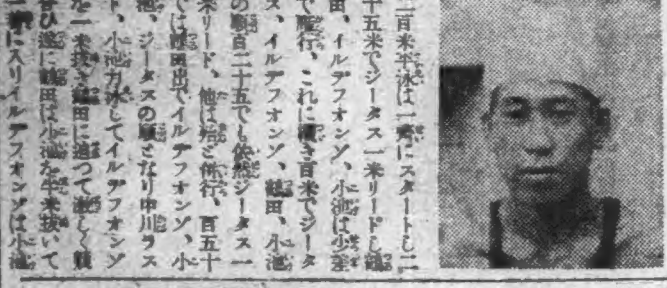 二百米平泳は一齊にスタートし二
十五米でジータス一米リードし鶴
田、イルデフォンゾ、小池は少差
で竝行、これに續き百米でジータ
ス、イルデフォンゾ、鶴田、小池
の順百二十五でも依然ジータス一
米リード、他は殆ど併行、百五十
では鶴田出でイルデフォンゾ、小
池、ジータスの順となり中川ラス
ト、小池力泳してイルデフォンゾ
を一米抜き鶴田に迫つて激しく戦
ひ遂に鶴田は小池を半米抜いて
一着に入りイルデフォンゾは小池